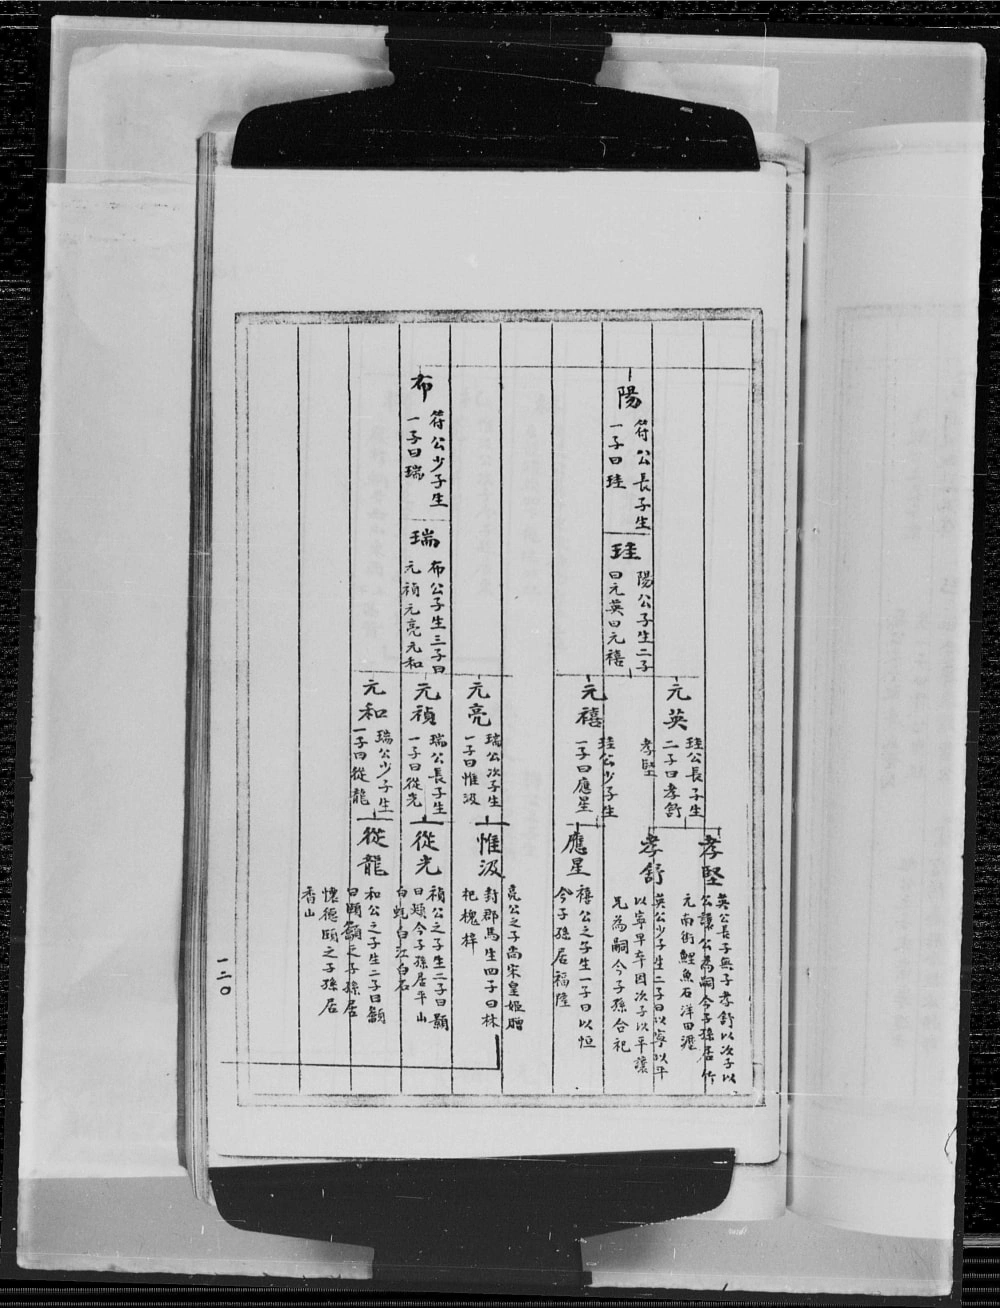 陽
符公長子生
一子曰珪
珪
陽公子生二子
曰元英曰元禧
元英
珪公長子生
二子曰孝舒
孝堅
孝堅
英公長子無子孝舒以次子以
公讓公為嗣今子孫居竹
元南街鯉魚石洋田瀝
孝舒
英公少子生二子曰以寧以平
以寧早卒因次子以平讓
兄為嗣今子孫合祀
元禧
珪公少子生
一子曰應星
應星
禧公之子生一子曰以恒
今子孫居福隆
布
符公少子生
一子曰瑞
瑞
布公子生三子曰
元禎元亮元和
元亮
瑞公次子生
一子曰惟汲
惟汲
亮公之子尚宋皇姬贈
封郡馬生四子曰林
杞槐梓
元禎
瑞公長子生
一子曰從光
從光
禎公之子生二子曰顯
曰熲今子孫居平山
白蚬白江白石
元和
瑞公少子生
一子曰從龍
從龍
和公之子生二子曰顲
曰頤顲之子孫居
懷德頤之子孫居
香山
一二〇